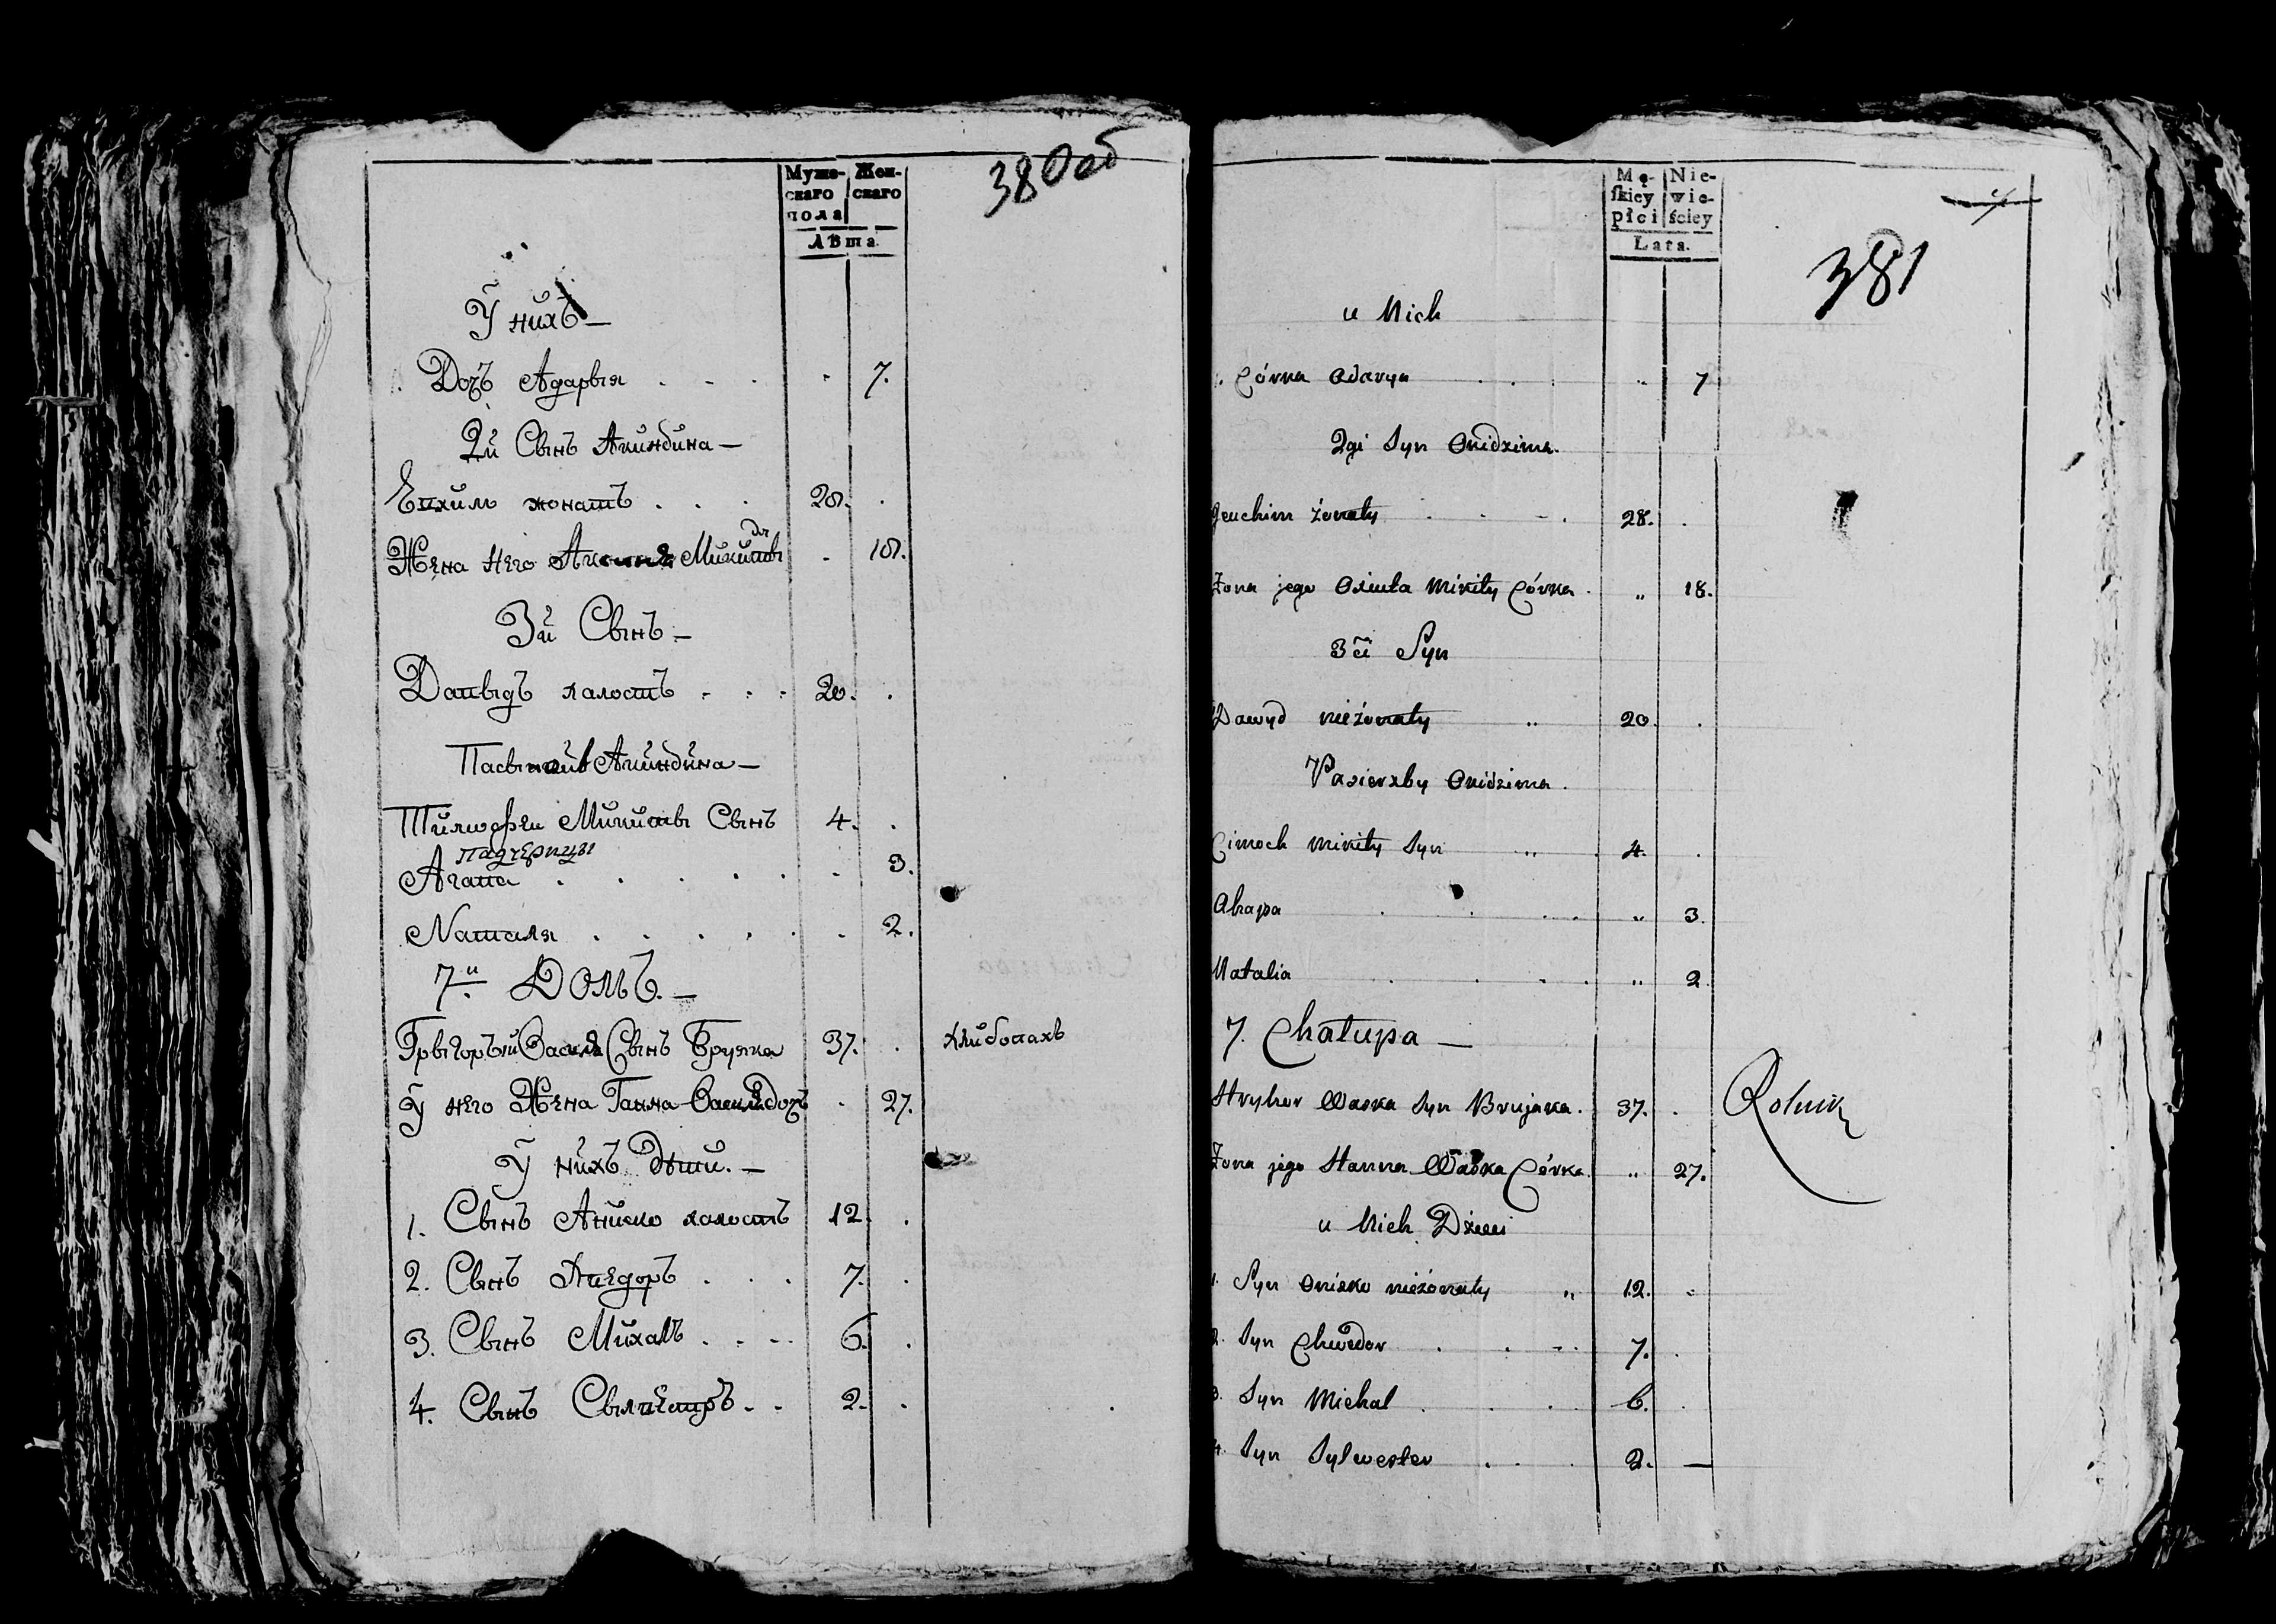 380об
Муже-
скаго
пола
Жен-
скаго
Лѣта.
У нихъ —
Дочъ Адарыя . . . . 7.
2й Сынъ Анындына —
Еихим жонатъ . . . 28. .
Жена Него Микиты дч . 18.
3й Сынъ —
Давыдъ халостъ . . . 20. .
Анындына —
Тимофеи Микиты Сынъ 4. .
Падчерицы
Агапа . . . . . . 3.
Наталя . . . . . . 2.
7й Домъ. —
Грыгорый Василя Сынъ Бруяка 37. . Хлибопахъ
У Него Жена Ганна Василя дочъ . 27.
У нихъ дѣти. —
1. Сынъ Аниско халостъ 12. .
2. Сынъ . . . 7. .
3. Сынъ Михалъ . . . 6. .
4. Сынъ Сылвестръ . . 2. .
Mę-
ſkiey
płci
Nie-
wie-
ściey
Lata.
381
u Nich
Córka Odarya . . . „ 7
2gi Syn Onidzima.
Jeuchim żonaty . . . 28. .
Żona jego Mikity Córka . „ 18.
3ci Syn
Dawyd nieżonaty „ 20. .
Pasierzby Onidzima.
Cimoch Mikity Syn „ . 4. .
Ahapa . . . . „ 3.
Natalia . . . . „ 2.
7. Chałupa —
Hryhor Waska Syn Brujaka. 37. . Rolnik
Żona jego Hanna Waska Córka. „ 27.
u Nich Dzieci
1. Syn Onisko nieżonaty „ 12. .
2. Syn Chwedor . . . 7. .
3. Syn Michal . . . 6. .
4. Syn Sylwester . . . 2. —